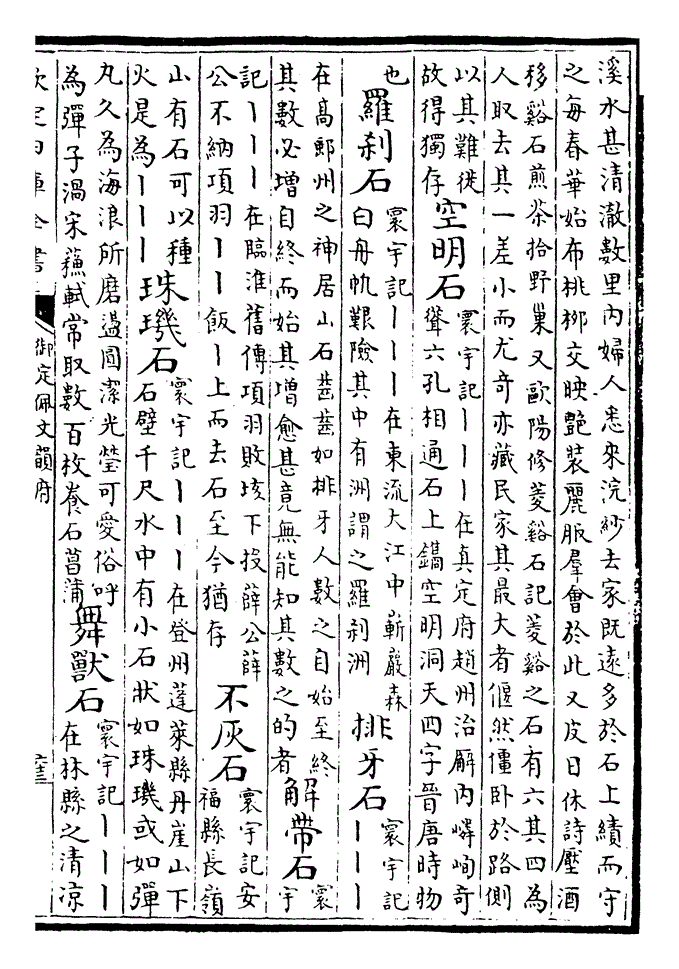 溪水甚清澈數里內婦人悉來浣紗去家既遠多於石上績而守
之每春華始布桃栁交映艷裝麗服羣會於此又皮日休詩壓酒
移谿石煎茶拾野巢又歐陽修菱谿石記菱谿之石有六其四為
人取去其一差小而尤奇亦藏民家其最大者偃然僵卧於路側
以其難徙
故得獨存
空明石
寰宇記丨丨丨在真定府趙州治廨內嶙峋奇
聳六孔相通石上鐫空明洞天四字晉唐時物
也
羅刹石
寰宇記丨丨丨在東流大江中嶄巖森
曰舟帆艱險其中有洲謂之羅刹洲
排牙石
寰宇記
丨丨丨
在高郵州之神居山石齒齒如排牙人數之自始至終
其數必增自終而始其增愈甚竟無能知其數之的者
解帶石
寰
宇
記丨丨丨在臨淮舊傳項羽敗垓下投薛公薛
公不納項羽丨丨飯丨上而去石至今猶存
不灰石
寰宇記安
福縣長嶺
山有石可以種
火是為丨丨丨
珠璣石
寰宇記丨丨丨在登州蓬萊縣丹崖山下
石壁千尺水中有小石狀如珠璣或如彈
丸久為海浪所磨盪圓潔光瑩可愛俗呼
為彈子渦宋蘇軾常取數百枚養石菖蒲
舞獸石
寰宇記丨丨丨
在林縣之清凉
欽定四庫全書
御定佩文韻府